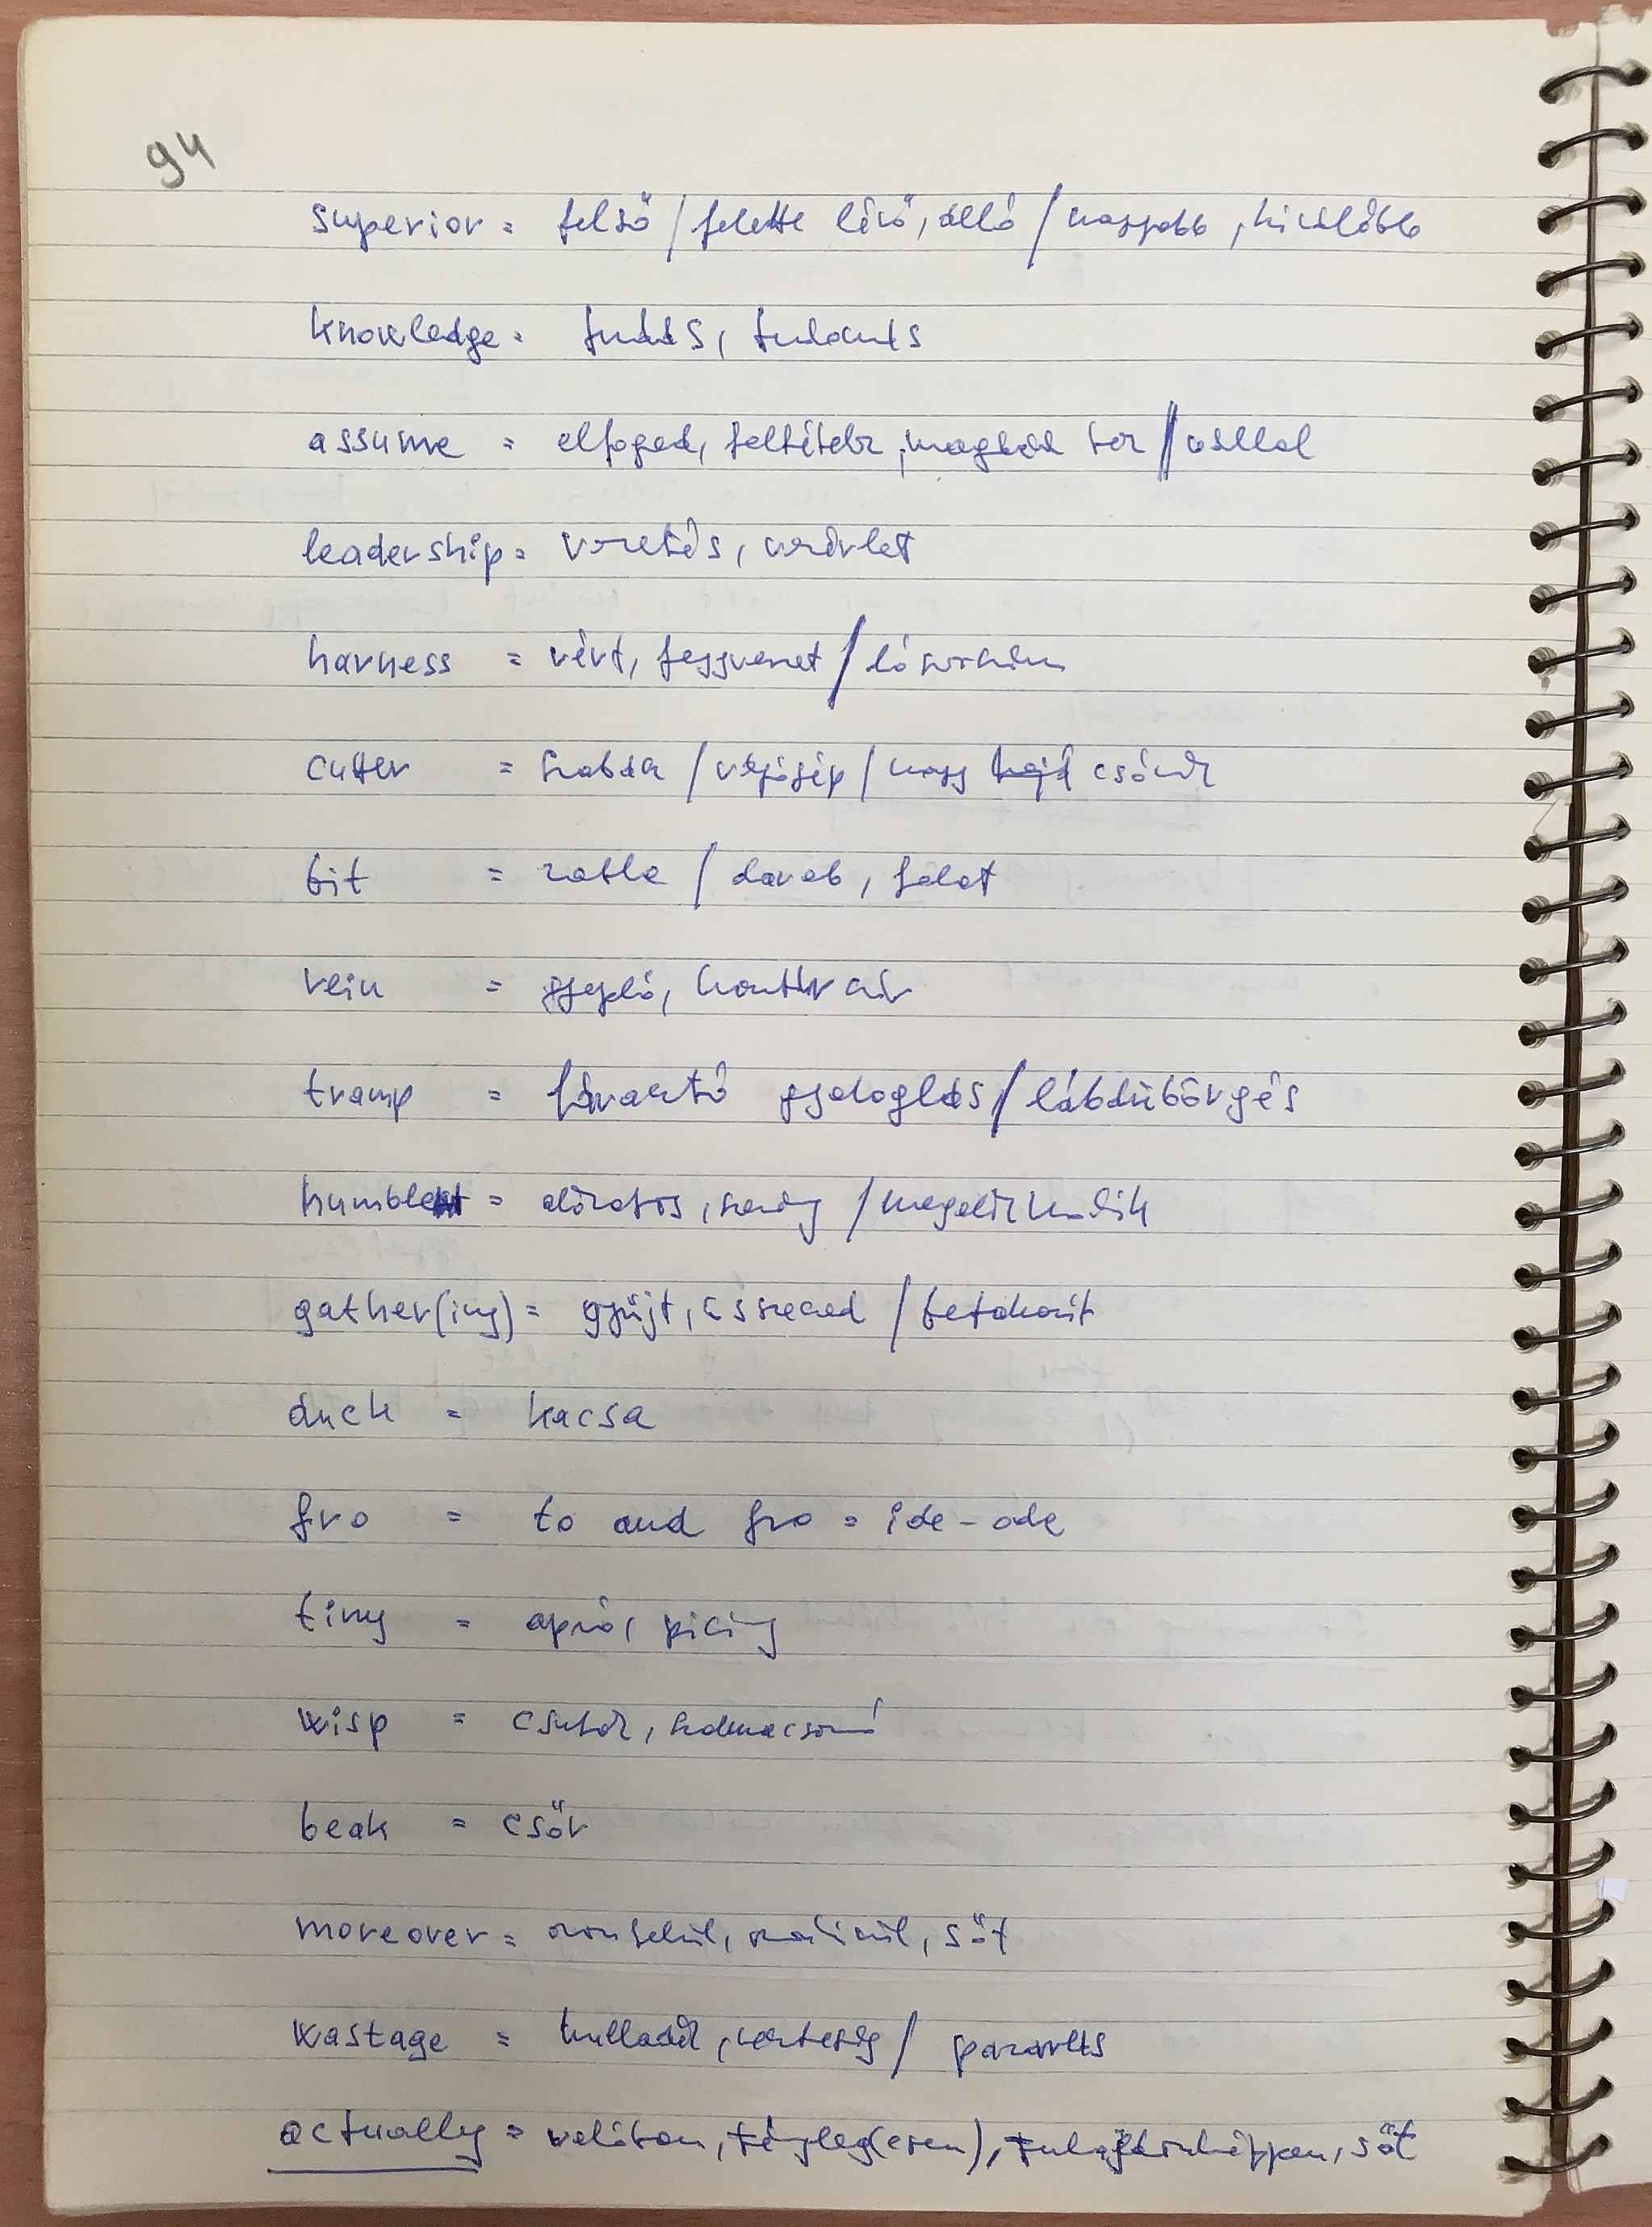 94
superior = felső / felette lévő, álló / nagyobb, kiválóbb
knowledge = tudás, tudomás
assume = elfogad, feltételez, magára vesz // vállal
leadership = vezetés, vezérlet
harness = vért, fegyverzet / lószerszám
cutter = szabász / vágógép / nagy hajó csónak
bit = zabla / darab, falat
rein = gyeplő, kantárszár
tramp = fárasztó gyaloglás / lábdübörgés
humble = alázatos, szerény / megalázkodik
gather(ing) = gyűjt, összeszed / betakarít
duck = kacsa
fro = to and fro = ide-oda
tiny = apró, piciny
wisp = csutak, szalmacsomó
beak = csőr
moreover = azonfelül, ráadásul, sőt
wastage = hulladék, veszteség / pazarlás
actually = valóban, tényleg(esen), tulajdonképpen, sőt